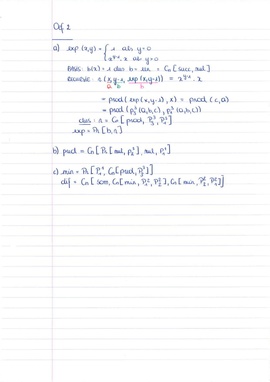 Oef 2
a) exp (x,y) = { 1 als y=0
x^y-1 . x als y≠0
BASIS: b(x) = 1 dus b = = Cn [succ, nul]
RECURSIE: (x, y-1, exp(x,y-1)) = x^y-1 . x
a b
= prod(exp(x,y-1), x) = prod (c,a)
= prod (p₃³(a,b,c), p₁³(a,b,c))
dus: = Cn [prod, P₃³, P₁³]
exp = Pr [b, ]
b) pred = Cn [Pr [nul, P₂³], nul, P₁¹]
c) min = Pr [P₁¹, Cn [pred, P₃³]]
dif = Cn [som, Cn [min, P₁², P₂²], Cn [min, P₂², P₁²]]